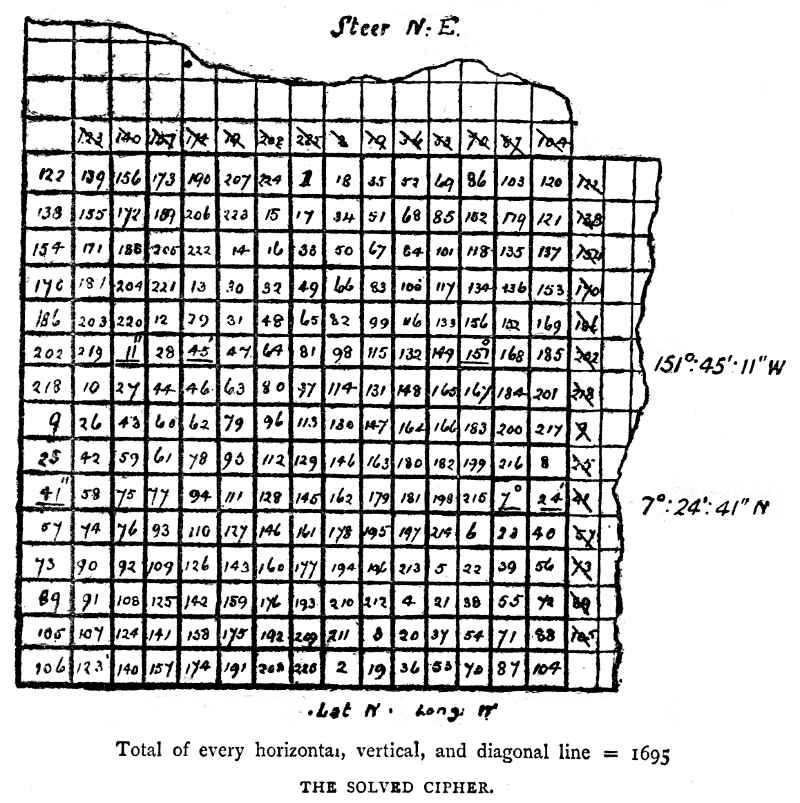 Steer N: E.
123 140 157 174 19 202 225 2 19 36 53 70 87 104
122 139 156 173 190 207 224 1 18 35 52 69 86 103 120 122
138 155 172 189 206 223 15 17 34 51 68 85 102 119 121 138
154 171 188 205 222 14 16 33 50 67 84 101 118 135 137 154
170 187 204 221 13 30 32 49 66 83 100 117 134 136 153 170
186 203 220 12 29 31 48 65 82 99 116 133 150 152 169 186
202 219 11" 28 45' 47 64 81 98 115 132 149 151° 168 185 202
151°:45':11" W
218 10 27 44 46 63 80 97 114 131 148 165 167 184 201 218
9 26 43 60 62 79 96 113 130 147 164 166 183 200 217 9
25 42 59 61 78 95 112 129 146 163 180 182 199 216 8 25
41" 58 75 77 94 111 128 145 162 179 181 198 215 7° 24' 41
7°:24':41" N
57 74 76 93 110 127 146 161 178 195 197 214 6 23 40 57
73 90 92 109 126 143 160 177 194 196 213 5 22 39 56 73
89 91 108 125 142 159 176 193 210 212 4 21 38 55 72 89
105 107 124 141 158 175 192 209 211 3 20 37 54 71 88 105
106 123 140 157 174 191 208 225 2 19 36 53 70 87 104
Lat N. Long: W
Total of every horizontal, vertical, and diagonal line = 1695
THE SOLVED CIPHER.